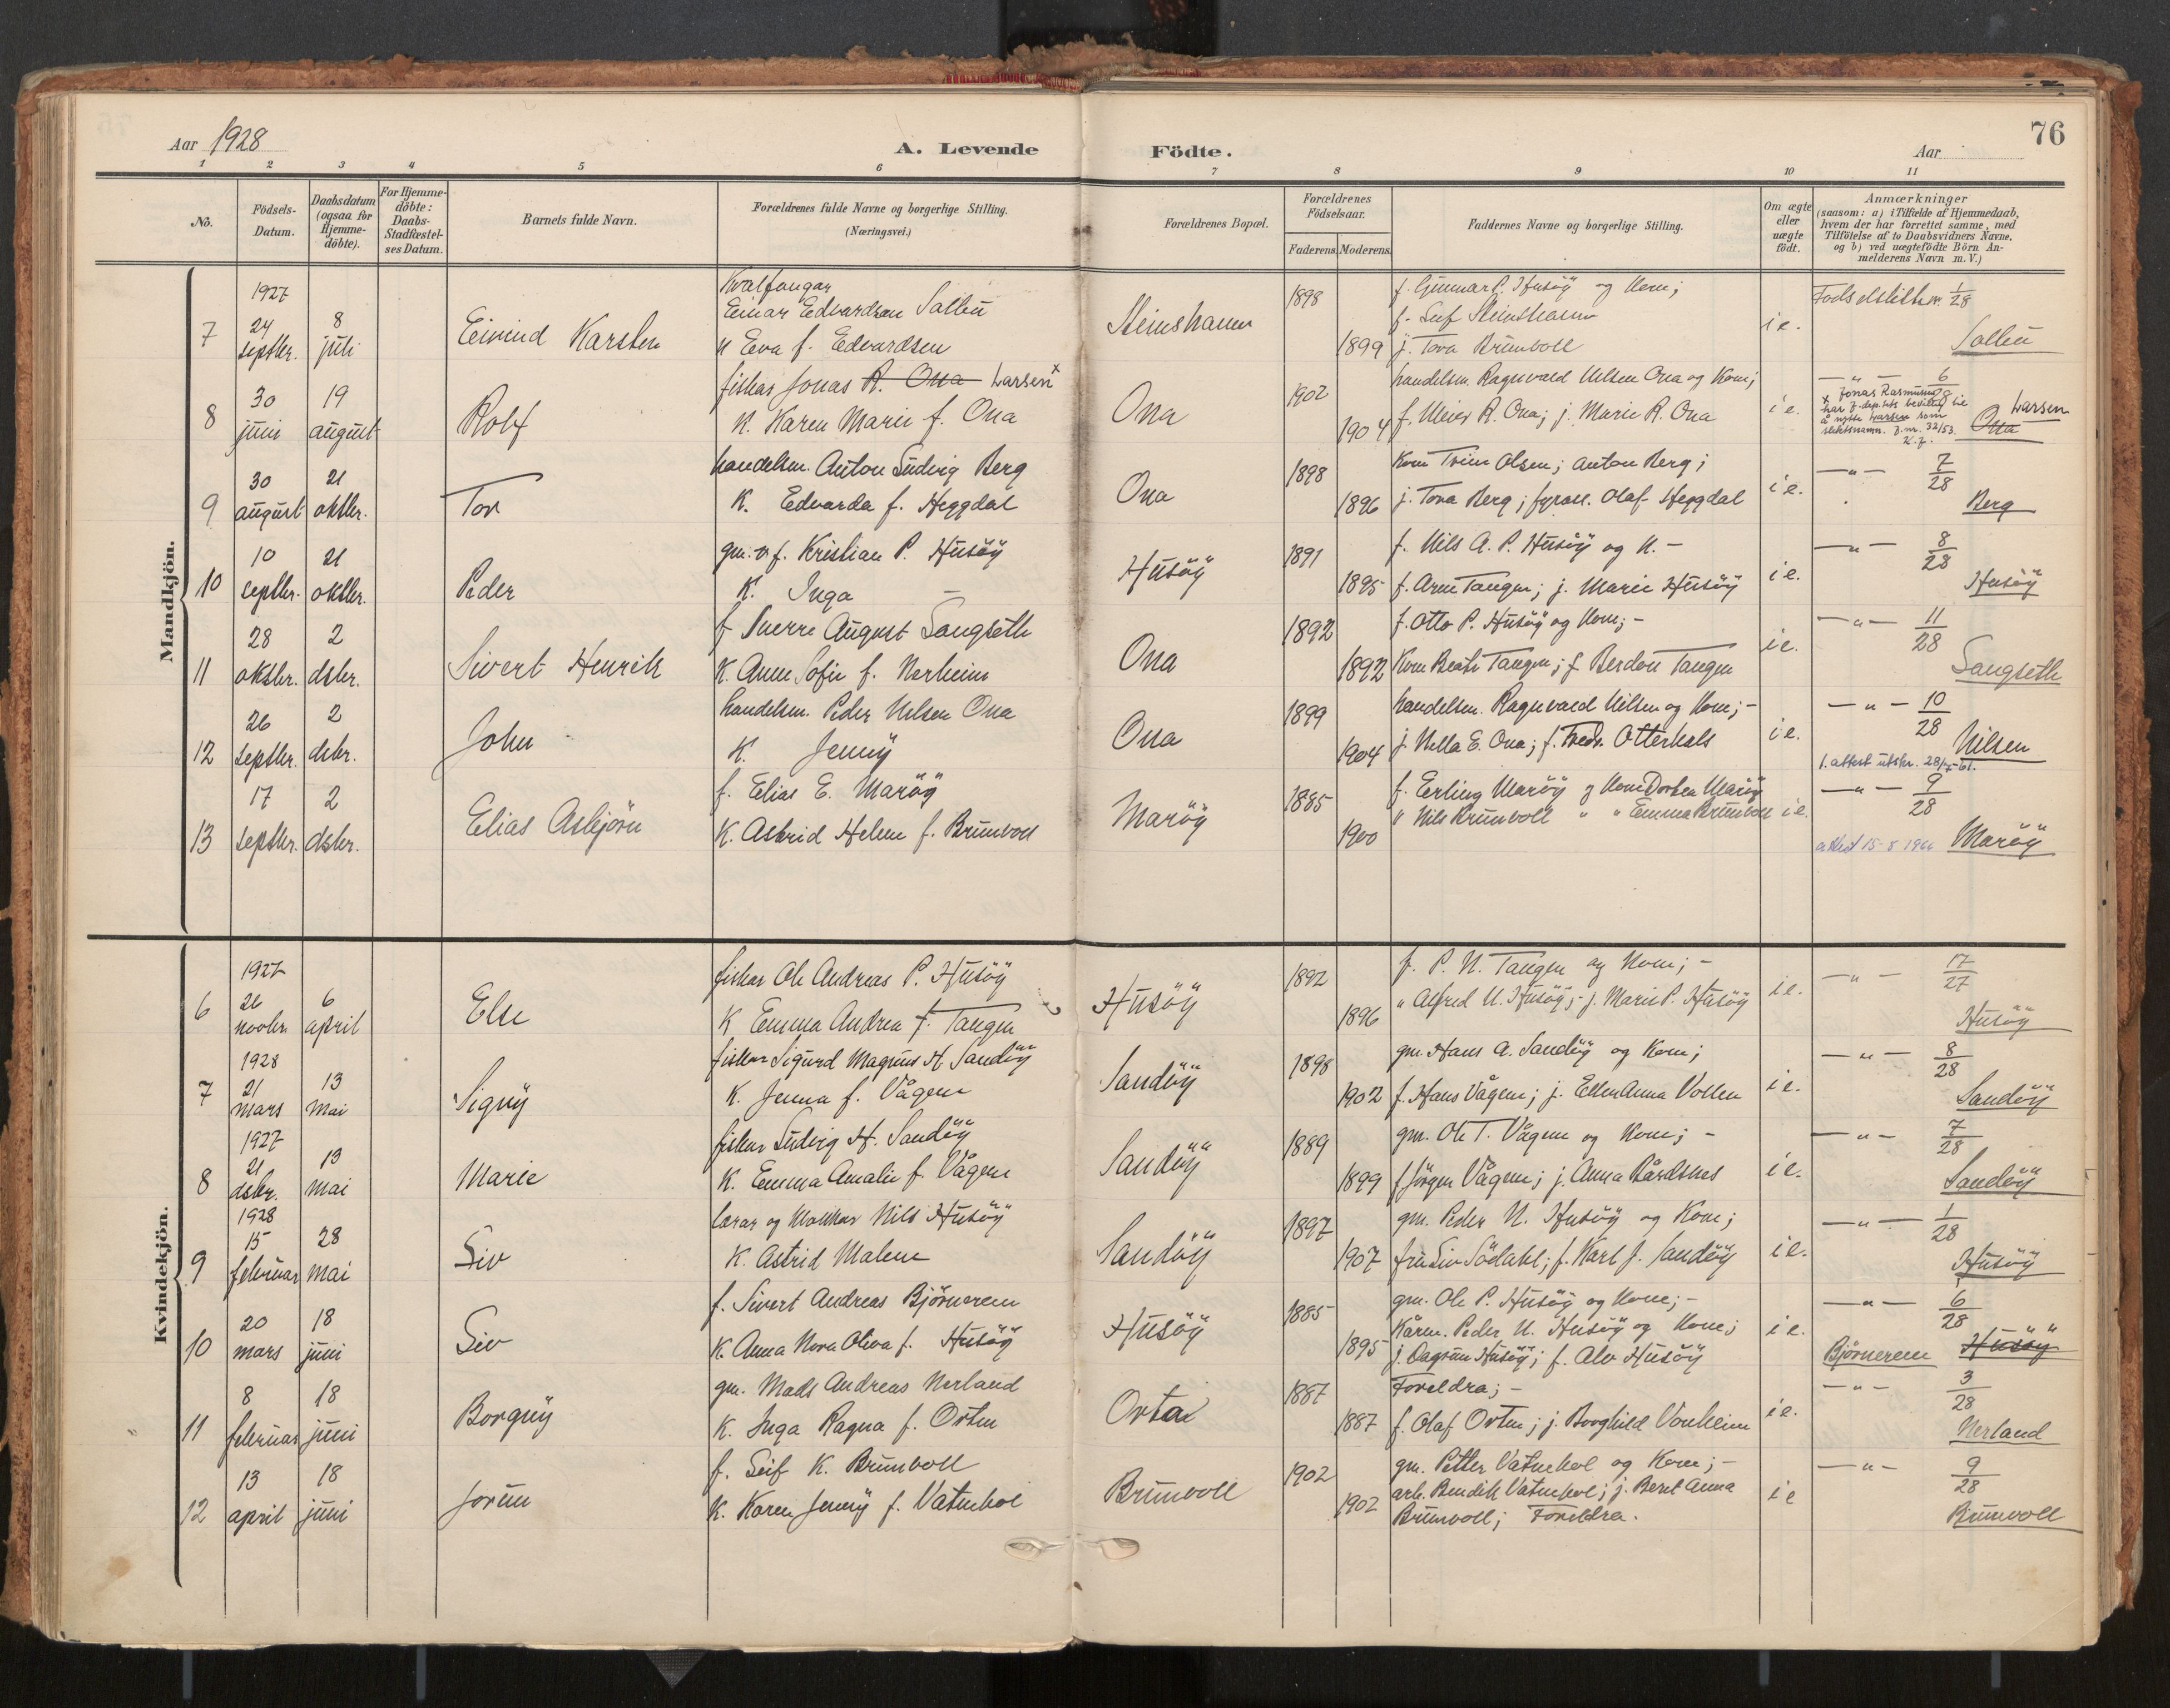 Aar 1928
A. Levende Födte.
Aar
76
1 2 3 4 5 6 7 8 9 10 11
No.
Födsels-Datum.
Daabsdatum (ogsaa for Hjemme-döbte).
For Hjemme-döbte: Daabs-Stadfæstel-ses Datum.
Barnets fulde Navn.
Forældrenes fulde Navne og borgerlige Stilling. (Næringsvei.)
Forældrenes Bopæl.
Forældrenes Födselsaar.
Faderens. Moderens.
Faddernes Navne og borgerlige Stilling.
Om ægte eller uægte födt.
Anmærkninger
(saasom: a) i Tilfælde af Hjemmedaab,
hvem der har forrettet samme, med
Tilföielse af to Daabsvidners Navne,
og b) ved uægtefödte Börn An-
melderens Navn m. V.)
Mandkjön.
7 1927 24 septbr. 8 juli Eivind Karsten
Kvalfangar Einar Edvardsen Sallen
K Eva f. Edvardsen
Steinshamn 1898 1899
f. Gunnar P. Husöy og Kona;
f. Leif Steinshamn
j. Tova Brunvoll
i e.
Fødselsliste nr. 1/28
8 30 juni 19 august Rolf
fiskar Jonas R. Ona Larsen x
K. Karen Marie f. Ona
Ona 1902 1904
handelsm. Ragnvald Nilsen Ona og Kona;
f. Meier R. Ona; j. Marie R. Ona
i e.
— " — 6/28
x Jonas Rasmussen
har J.dep.tets bevilling til
å nytte Larsen som
slektsnamn. J.nr. 32/53.
K.J.
Larsen
Ona
9 30 august 21 oktbr. Tor
handelsm. Anton Ludvig Berg
K. Edvarda f. Heggdal
Ona 1898 1896
Kona Trine Olsen; Anton Berg;
j. Tova Berg; fyrass. Olaf Heggdal
i e.
— " — 7/28
Berg
10 10 septbr. 21 oktbr. Peder
gm. og f. Kristian P. Husöy
K. Inga —
Husöy 1891 1895
f. Nils A. P. Husöy og K. -
f. Arne Tangen; j. Marie Husöy
i e.
— " — 8/28
Husöy
11 28 oktbr. 2 dsbr. Sivert Henrik
f Sverre August Langseth
K. Anne Sofie f. Nerheim
Ona 1892 1892
f. Otto P. Husöy og Kona; -
Kona Beate Tangen; f. Berdon Tangen
i e.
— " — 11/28
Langseth
12 26 septbr. 2 dsbr. John
handelsm. Peder Nilsen Ona
K. Jenny
Ona 1899 1904
handelsm. Ragnvald Nilsen og Kona; -
j. Nella E. Ona; f. Fredr. Otterhals
i e.
— " — 10/28
Nilsen
1. attest utskr. 28/4-61.
13 17 septbr. 2 dsbr. Elias Asbjörn
f. Elias E. Maröy
K. Astrid Helene f. Brunvoll
Maröy 1885 1900
f. Erling Maröy og Kona Dorthea Maröy
" Nils Brunvoll " " Emma Brunvoll
i e.
— " — 9/28
attest 15-8 1966
Maröy
Kvindekjön.
6 1927 26 novbr. 6 april Else
fiskar Ole Andreas P. Husöy
K Emma Andrea f. Tangen
Husöy 1892 1896
f. P. N. Tangen og Kona; -
" Alfred N. Husöy; - j. Marie P. Husöy
i e.
— " — 17/27
Husöy
7 1928 21 mars 13 mai Signy
fiskar Sigurd Magnus H. Sandöy
K. Jenna f. Vågen
Sandöy 1898 1902
gm. Hans A. Sandöy og Kona;
f. Hans Vågen; j. Ellen Anna Vollen
i e.
— " — 8/28
Sandöy
8 1927 21 dsbr. 13 mai Marie
fiskar Ludvig H. Sandöy
K. Emma Amalie f. Vågen
Sandöy 1889 1899
gm. Ole T. Vågen og Kona; -
f Jörgen Vågen; j. Anna Bårdsnes
i e.
— " — 7/28
Sandöy
9 1928 15 februar 28 mai Siv
lærar og klokkar Nils Husöy
K. Astrid Malene
Sandöy 1897 1907
gm. Peder N. Husöy og Kona;
fru Siv Södahl; f. Karl J. Sandöy
i e.
— " — 1/28
Husöy
10 20 mars 18 juni Siv
f. Sivert Andreas Björnerem
K. Anna Nora Oliva f. Husöy
Husöy 1885 1895
gm. Ole P. Husöy og Kona; -
Kårm. Peder N. Husöy og Kona;
j. Dagrun Husöy; f. Alv Husöy
i e.
— " — 6/28
Björnerem Husöy
11 8 februar 18 juni Borgny
gm. Mads Andreas Nerland
K. Inga Ragna f. Orten
Orta 1887 1887
Foreldra; -
f. Olaf Orten; j. Borghild Vonheim
i e.
— " — 3/28
Nerland
12 13 april 18 juni Jorun
f. Leif K. Brunvoll
K. Karen Jenny f. Vatnehol
Brunvoll 1902 1902
gm. Petter Vatnehol og Kona; -
arb. Bendik Vatnehol; j. Beret Anna
Brunvoll; Foreldra.
i e
— " — 9/28
Brunvoll